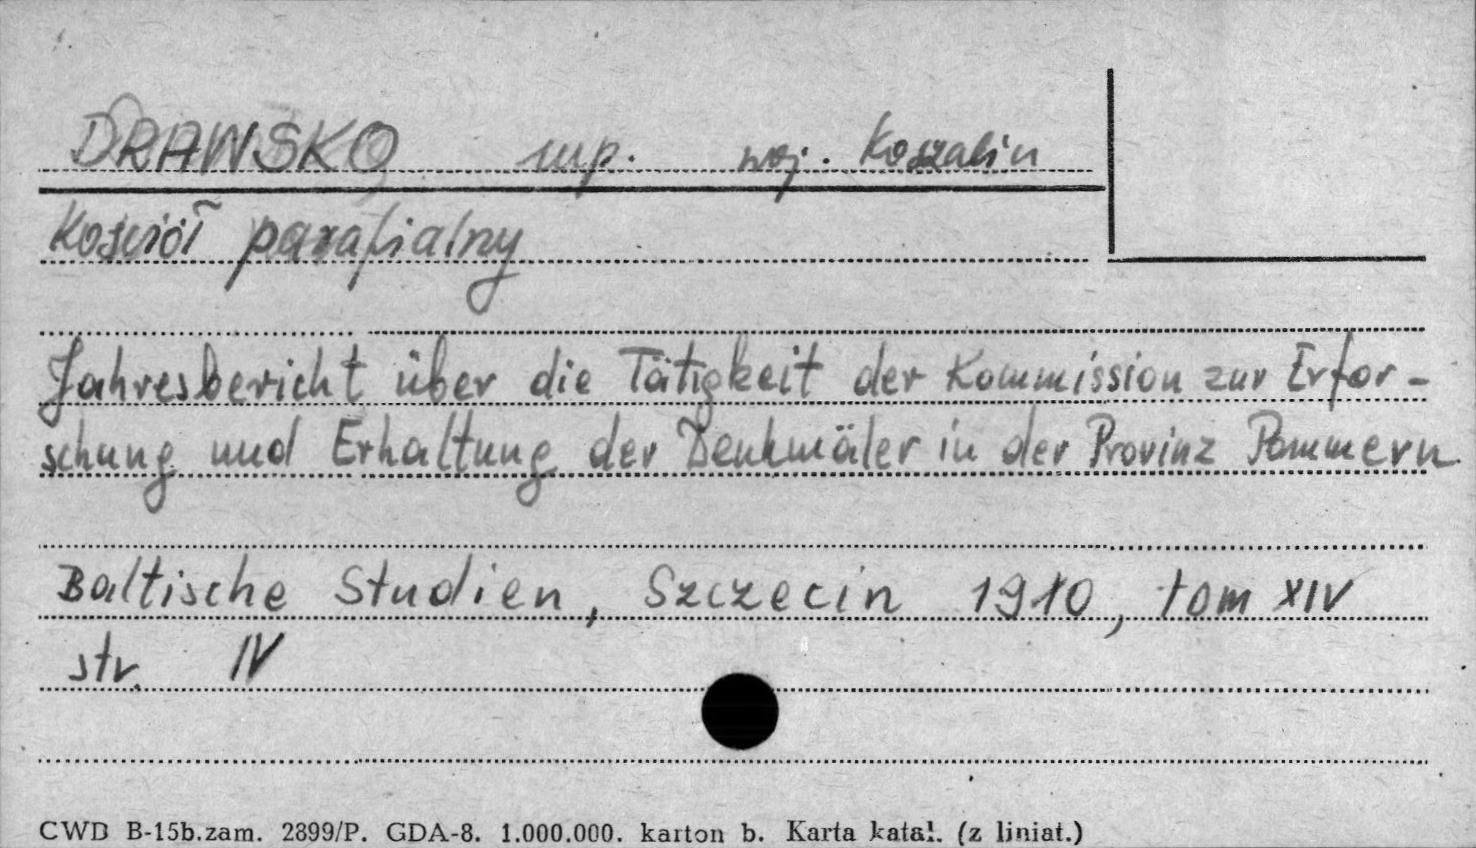 DRAWSKO mp. woj. Koszalin
Kościół parafialny
Jahresbericht über die Tätigkeit der Kommission zur Erfor-
schung und Erhaltung der Denkmäler in der Provinz Pommern
Baltische Studien, Szczecin 1910, tom XIV
str. IV
CWD B-15b.zam. 2899/P. GDA-8. 1.000.000. karton b. Karta katal. (z liniat.)